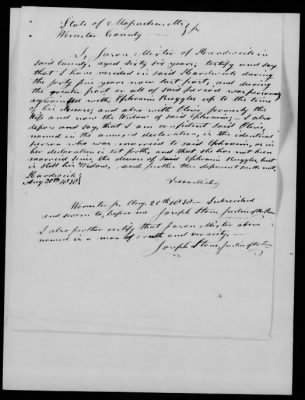 State of Massachusetts
Worcester County ss
I, Jason Mixter of Hardwick in
said County, aged sixty six years, testify and say
that I have resided in said Hardwick during
the forty five years now last past, and during
the greater part or all of said period was personally
acquainted with Ephraim Ruggles up to the time
of his decease; and also with Olive, formerly the
Wife and now the Widow of said Ephraim; I also
depose and say, that I am confident said Olive,
named in the annexed declaration, is the identical
person who was married to said Ephraim, as in
her declaration is set forth, and that she has not been
married since the decease of said Ephraim Ruggles, but
is still his Widow, and further this deponent saith not,
Hardwick
Aug 20th 1838
Jason Mixter
Worcester ss Aug. 20th 1838 Subscribed
and sworn to, before me Joseph Stone Justice of the Peace
I also further certify that Jason Mixter above
named is a man of truth and veracity.
Joseph Stone Justice of the Peace